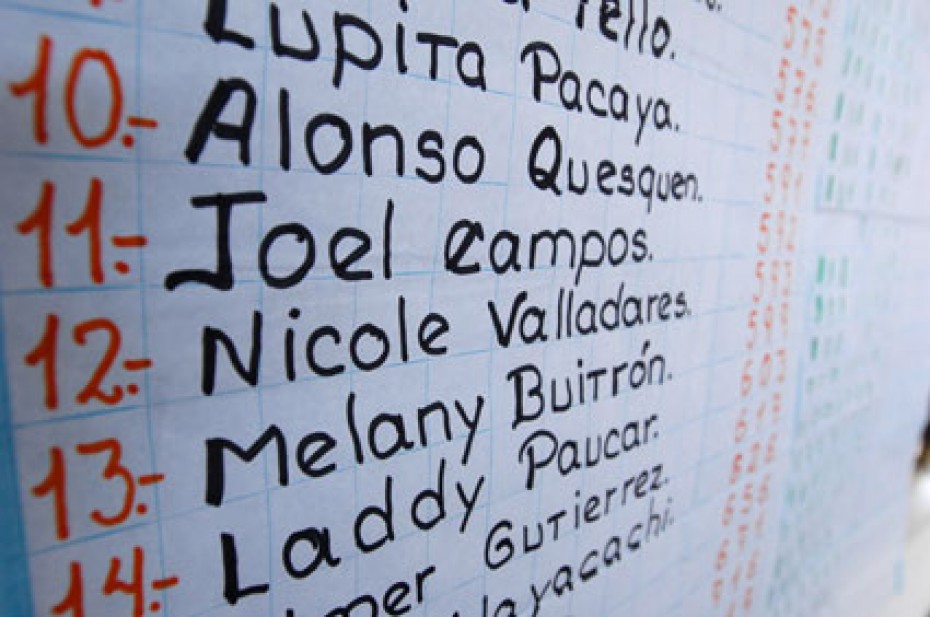 Tello.
Lupita Pacaya.
10.- Alonso Quesquen.
11.- Joel Campos.
12.- Nicole Valladares.
13.- Melany Buitrón.
14.- Laddy Paucar.
Gutierrez.